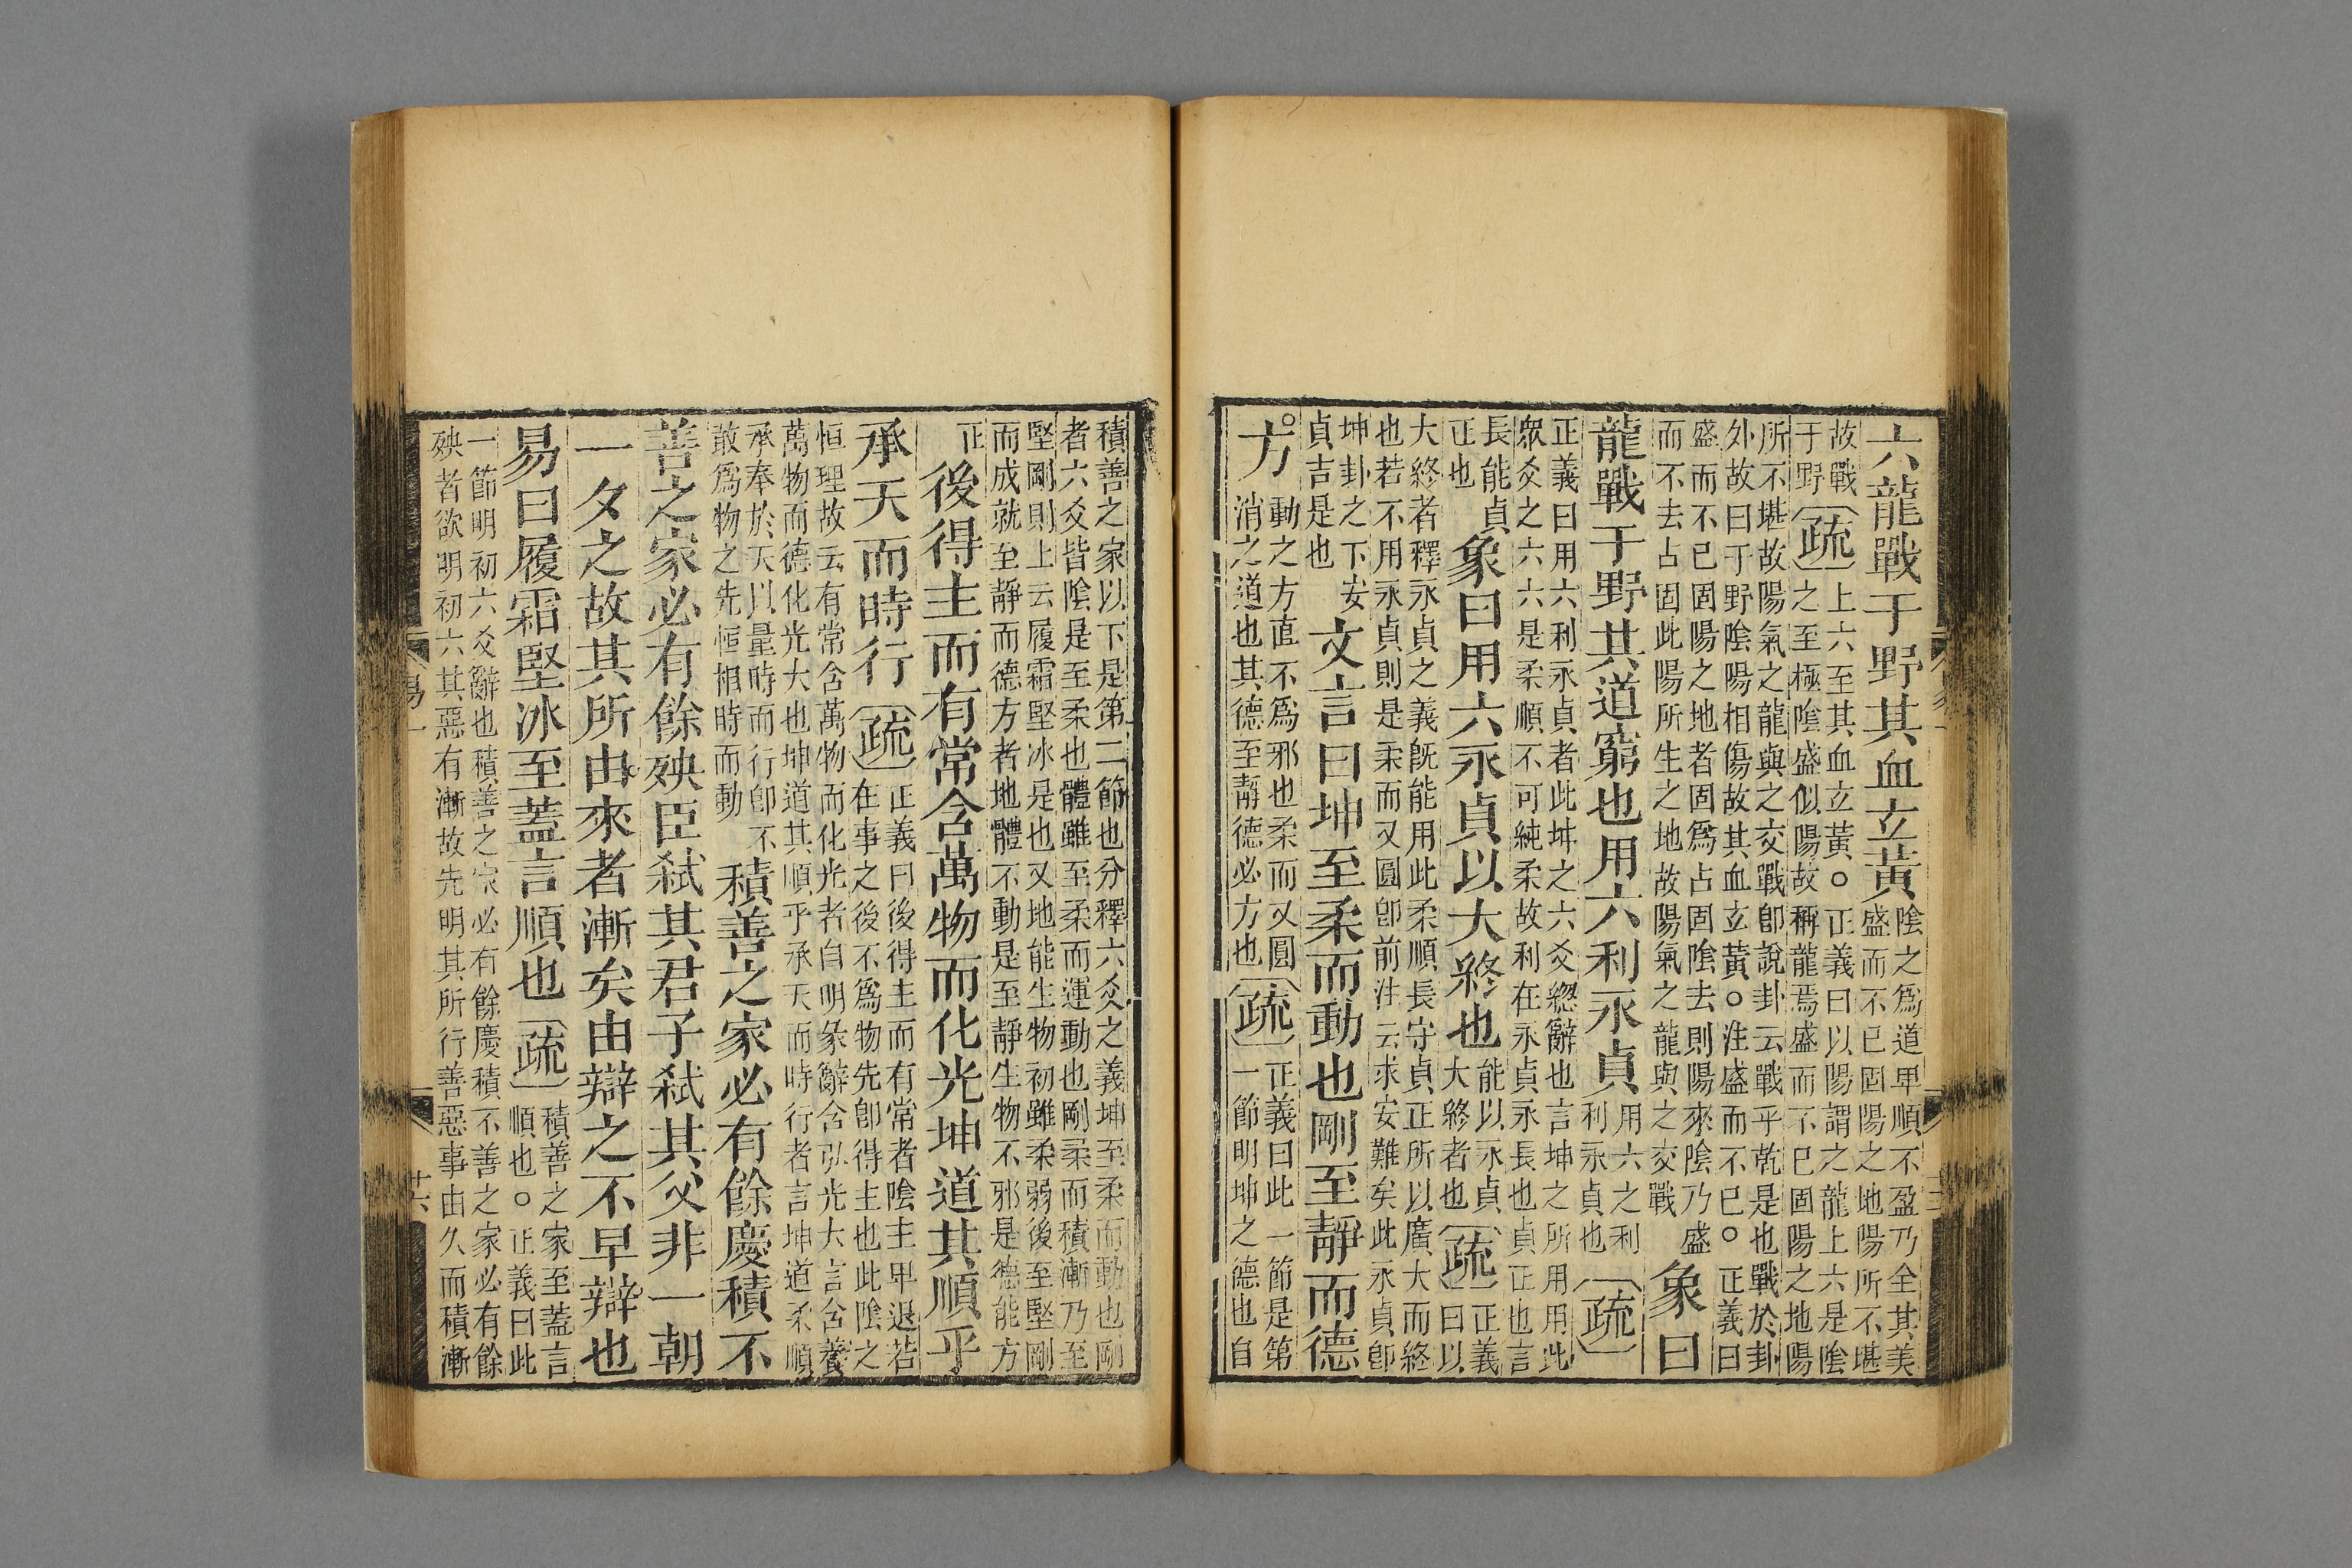 六龍戰于野其血玄黃陰之爲道卑順不盈乃全其美
盛而不已固陽之地陽所不堪
故戰于野〔疏〕上六至其血玄黃○正義曰以陽謂之龍上六是陰
之至極陰盛似陽故稱龍焉盛而不已固陽之地陽
所不堪故陽氣之龍與之交戰卽說卦云戰乎乾是也戰於卦
外故曰于野陰陽相傷故其血玄黃○注盛而不已○正義曰
盛而不已固陽之地者固爲占固陰去則陽來陰乃盛
而不去占固此陽所生之地故陽氣之龍與之交戰
象曰
龍戰于野其道窮也用六利永貞用六之利
利永貞也〔疏〕
正義曰用六利永貞者此坤之六爻緫辭也言坤之所用用此
衆爻之六六是柔順不可純柔故利在永貞永長也貞正也言
長能貞正也象曰用六永貞以大終也能以永貞
大終者也〔疏〕正義
曰以
大終者釋永貞之義旣能用此柔順長守貞正所以廣大而終
也若不用永貞則是柔而又圓卽前注云求安難矣此永貞卽
坤卦之下安
貞吉是也文言曰坤至柔而動也剛至靜而德
方動之方直不爲邪也柔而又圓
消之道也其德至靜德必方也〔疏〕正義曰此一節是第
一節明坤之德也自
積善之家以下是第二節也分釋六爻之義坤至柔而動也剛
者六爻皆陰是至柔也體雖至柔而運動也剛柔而積漸乃至
堅剛則上云履霜堅冰是也又地能生物初雖柔弱後至堅剛
而成就至靜而德方者地體不動是至靜生物不邪是德能方
正後得主而有常含萬物而化光坤道其順乎
承天而時行〔疏〕正義曰後得主而有常者陰主卑退若
在事之後不爲物先卽得主也此陰之
恒理故云有常含萬物而化光者自明彖辭含弘光大言含養
萬物而德化光大也坤道其順乎承天而時行者言坤道柔順
承奉於天以量時而行卽不
敢爲物之先恒相時而動積善之家必有餘慶積不
善之家必有餘殃臣弑其君子弑其父非一朝
一夕之故其所由來者漸矣由辯之不早辯也
易曰履霜堅冰至蓋言順也〔疏〕積善之家至蓋言
順也○正義曰此
一節明初六爻辭也積善之家必有餘慶積不善之家必有餘
殃者欲明初六其惡有漸故先明其所行善惡事由久而積漸
易一
廿六